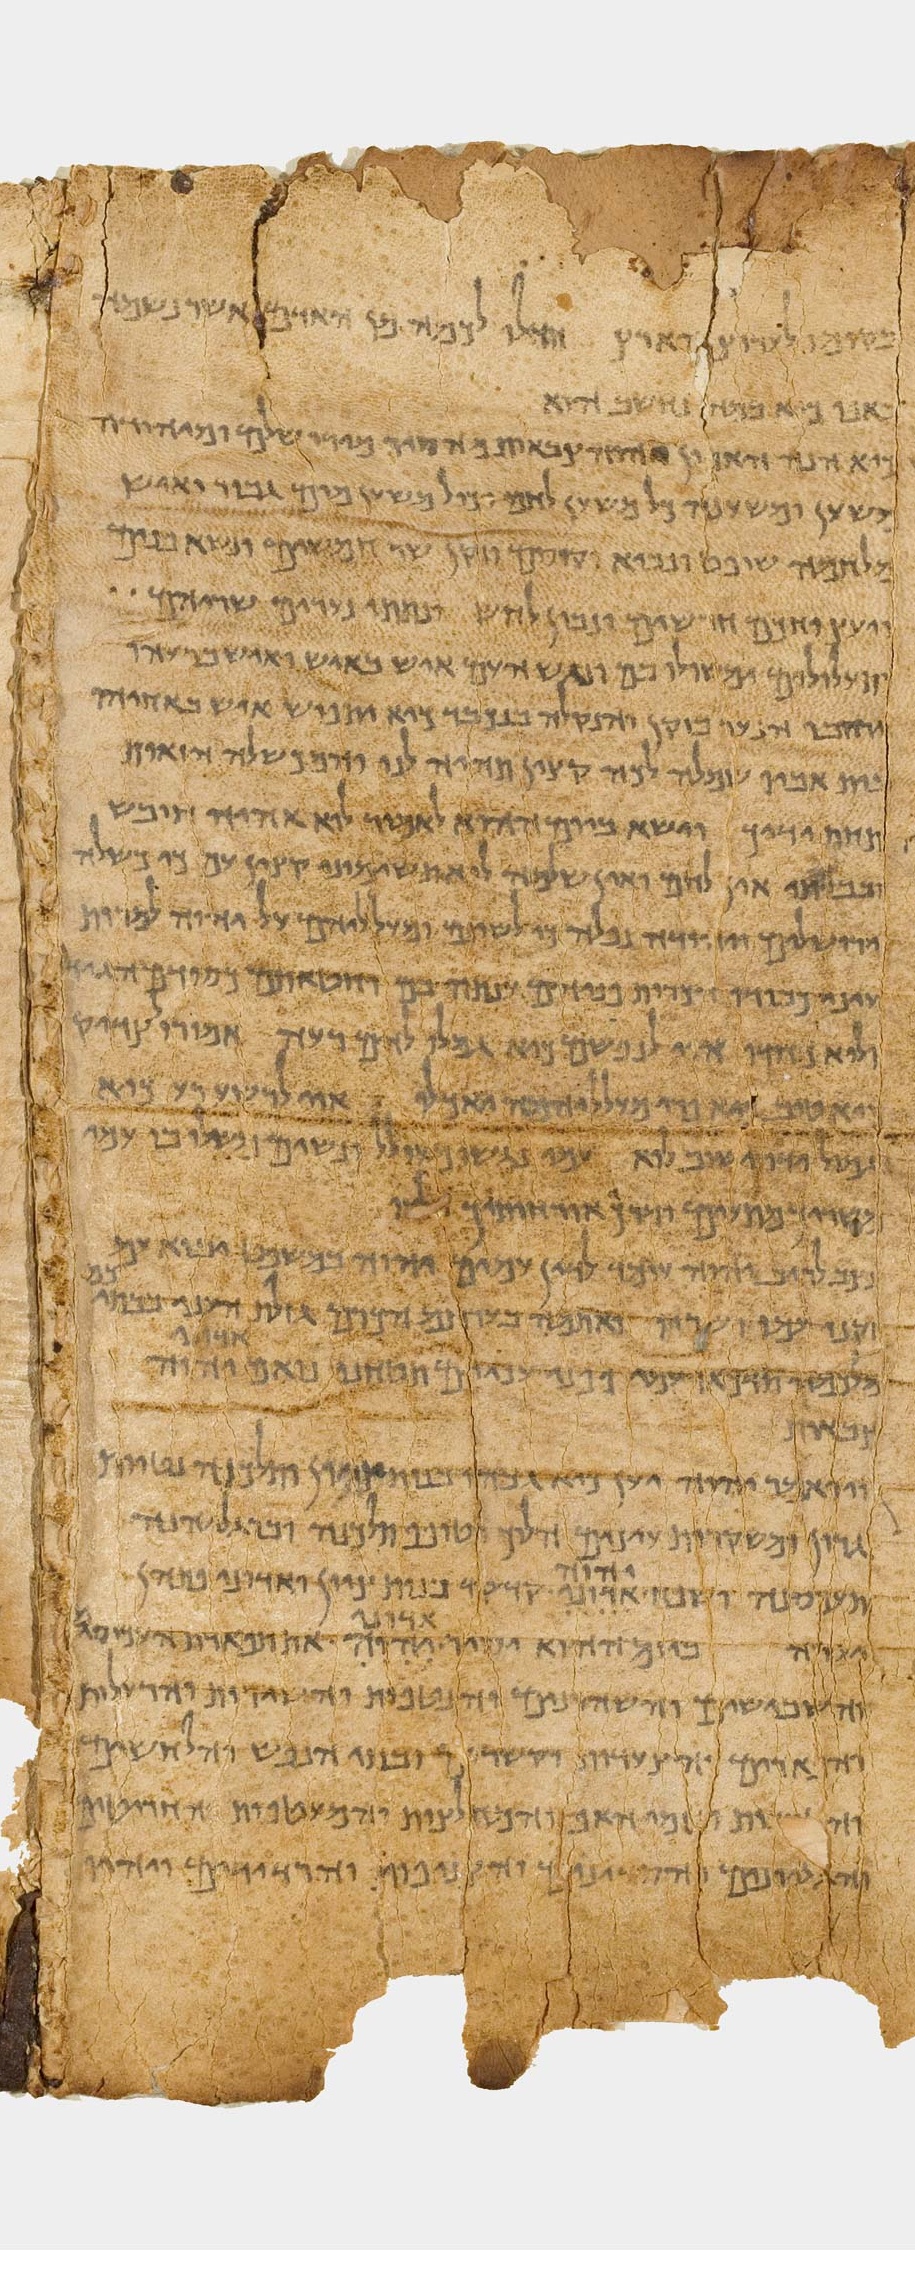 בקומו לערוץ הארץ חדלו לכמה מן האדם אשר נשמה
באפו כיא במה נחשב הוא
כיא הנה האדון יהוה צבאות מסיר מירושלים ומיהודה
משען ומשענה כל משען לחם וכול משען מים גבור ואיש
מלחמה שופט ונביא וקוסם וזקן שר חמשים ונשוא פנים
ויועץ וחכם חרשים ונבון לחש ונתתי נערים שריהם
ותעלולים ימשולו בם ונגש העם איש באיש ואיש ברעהו
הנער בזקן והנקלה בנכבד כיא יתפוש איש באחיהו
בית אביו שמלה לכה קצין תהיה לנו והמכשלה הזואת
תחת ידיך וישא ביום ההוא לאמור לוא אהיה חובש
ובביתי אין לחם ואין שמלה לוא תשימוני קצין עם כי כשלה
ירושלים ויהודה נפלה כי לשונם ומעלליהם על יהוה למרות
עיני כבודו הכרת פניהם ענתה בם וחטאתם כסודם הגידו
ולוא כחדו אוי לנפשם כיא גמלו להם רעה אמורו לצדיק
כיא טוב כיא פרי מעלליהמה יואכלו אוי לרשע רע כיא
גמול ידיו ישוב לוא עמי נגשו מעולל ונשים משלו בו עמי
מאשריך מתעים ודרך אורחותיך
נצב לריב יהוה עומד לדין עמים יהוה במשפט יבוא עם
זקני עמו ושריו ואתמה בערתם הכרם גזלת העני בבתיכם
אדוני
מלכם תדכאו עמי ופני עניים תטחנו נואם יהוה
צבאות
ויואמר יהוה יען כיא גבהו בנות ציון ותלכנה נטוות
גרון ומשקרות עינים הלוך וטופף תלכנה וברגליהנה
יהוה
תעכסנה ושפח אדוני קדקד בנות ציון ואדוני פתהן
אדוני
יערה ביום ההוא יסיר יהוה את תפארת העכסים
והשבישים והשהרונים והנטפות והשירות והרעלות
והפארים והצעדות והקשרים ובתי הנפש והלחשים
והטבעות ונזמי האף והמחלצות והמעטפות והחריטים
והגליונים והסדינים והצניפות והרדידים ויהיו